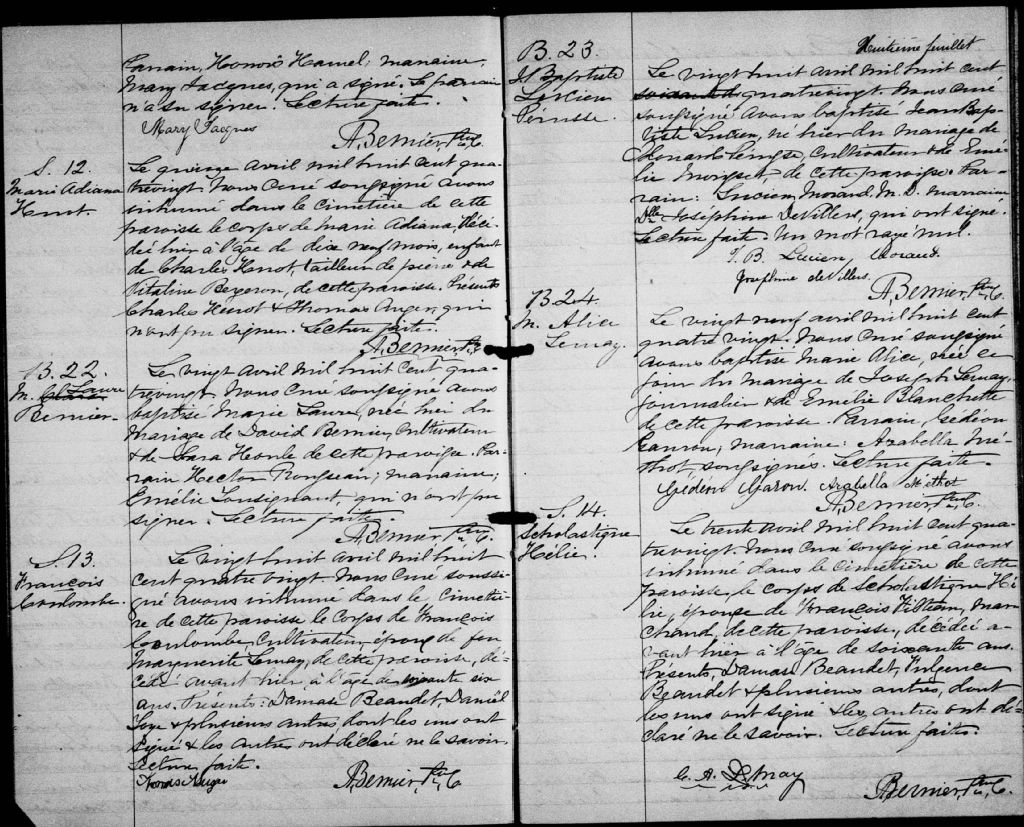 Parrain, Honoré Hamel; marraine,
Mary Jacques, qui a signé. Le parrain
n'a su signer. Lecture faite.
Mary Jacques
A. Bernier, Ptre C.
S. 12.
Marie Adiana
Le quinze avril mil huit cent qua-
trevingt. Nous curé soussigné avons
inhumé dans le cimetière de cette
paroisse le corps de Marie Adiana, décé-
dée hier à l'âge de dix neuf mois, enfant
de Charles tailleur de pierre & de
Vitaline Bergeron, de cette paroisse. Présents
Charles & Thomas Auger, qui
n'ont pu signer. Lecture faite.
A. Bernier Ptre C.
B. 22.
M. Laure
Bernier.
Le vingt avril mil huit cent qua-
trevingt. Nous curé soussigné avons
baptisé Marie Laure, née hier du
mariage de David Bernier, cultivateur
& de de cette paroisse. Par-
rain Hector Rousseau; marraine,
Emélie Lousignant, qui n'ont pu
signer. Lecture faite.
A. Bernier, Ptre C.
S. 13.
François
Coulombe.
Le vingt huit avril mil huit
cent quatre vingt. Nous curé soussi-
gné avons inhumé dans le cimetiè-
re de cette paroisse le corps de François
Coulombe, cultivateur, époux de feu
Marguerite Lemay, de cette paroisse, dé-
cédé avant hier, à l'âge de soixante six
ans. Présents: Damase Beaudet, Daniel
& plusieurs autres dont les uns ont
signé & les autres ont déclaré ne le savoir.
Lecture faite.
A. Bernier, Ptre C
Huitième feuillet
B. 23.
J. Baptiste
Lucien
Le vingt huit avril mil huit cent
soixante quatrevingt. Nous curé
soussigné avons baptisé Jean Bap-
tiste Lucien, né hier du mariage de
cultivateur & de Emé-
lie de cette paroisse. Par-
rain: Lucien Morand, M. D. marraine
Dlle Joséphine DeVillers, qui ont signé.
Lecture faite. Un mot rayé nul.
J. B. Lucien Morand.
Josephine deVillers
A. Bernier, Ptre C.
B. 24.
M. Alice
Lemay.
Le vingt neuf avril mil huit cent
quatre vingt. Nous curé soussigné
avons baptisé Marie Alice, née ce
jour du mariage de Joseph Lemay,
journalier & de Emélie Blanchette
de cette paroisse. Parrain, Gédéon
marraine: Arabella Mé-
thot, soussignés. Lecture faite.
Gédéon Garon. Arabella Méthot
A. Bernier, Ptre C.
S. 14.
Scholastique
Hélie.
Le trente avril mil huit cent qua-
trevingt. Nous curé soussigné avons
inhumé dans le cimetière de cette
paroisse, le corps de Scholastique Hé-
lie, épouse de François mar-
chand, de cette paroisse, décédée a-
vant hier à l'âge de soixante ans.
Présents, Damase Beaudet, Fulgence
Beaudet & plusieurs autres, dont
les uns ont signé & les autres ont dé-
claré ne le savoir. Lecture faite.
A. Bernier, Ptre C.